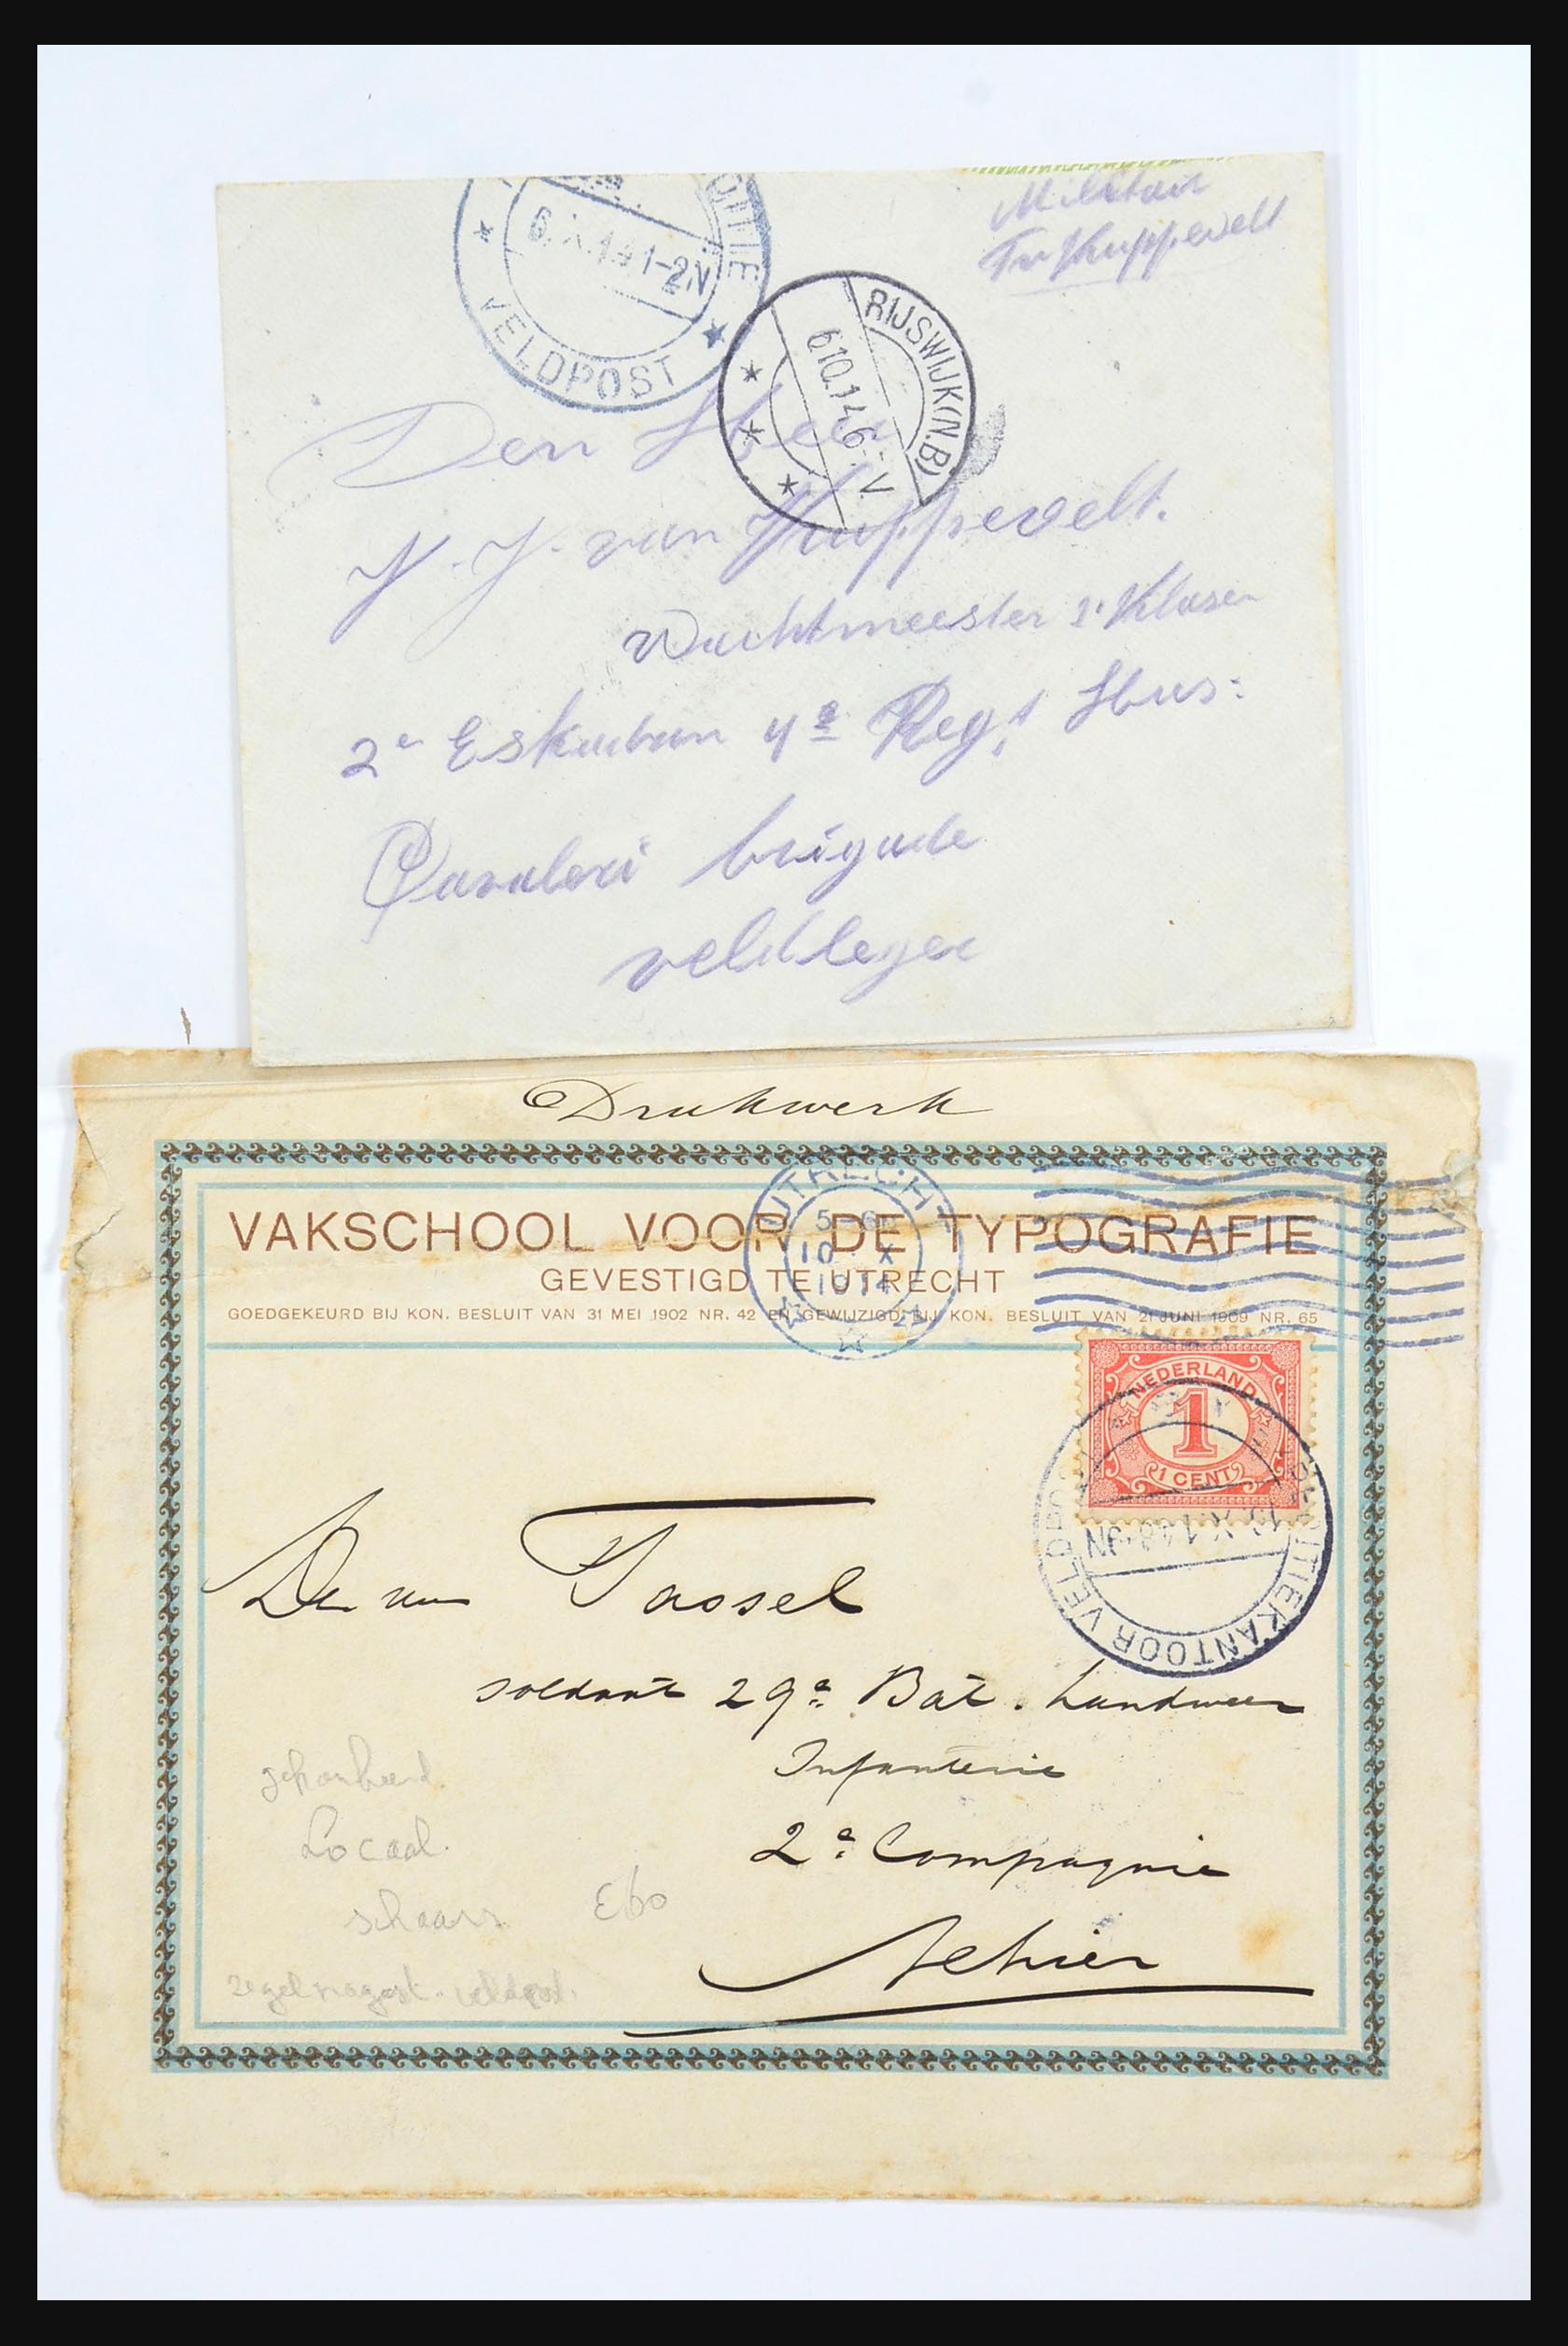 Militair
Fr v Kuppevelt
6.X.14 1-2N
VELDPOST
RIJSWIJK (N.B)
6.10.14 6-V
Den Heer
J. J. van Kuppevelt.
Wachtmeester
2e Eskadron 4e Regt Hus:
Cavaleri brigade
veldleger
Drukwerk
VAKSCHOOL VOOR DE TYPOGRAFIE
GEVESTIGD TE UTRECHT
GOEDGEKEURD BIJ KON. BESLUIT VAN 31 MEI 1902 NR. 42 EN GEWIJZIGD BIJ KON. BESLUIT VAN 21 JUNI 1909 NR. 65
UTRECHT
5-6
10 X
1914
NEDERLAND
1
1 CENT
EXPEDITIEKANTOOR VELDPOST
X.14 8-9N
Tassel
soldaat 29e Bat. Landweer
Infanterie
2e Compagnie
Alhier
Locaal.
schaars
E60
veldpost.